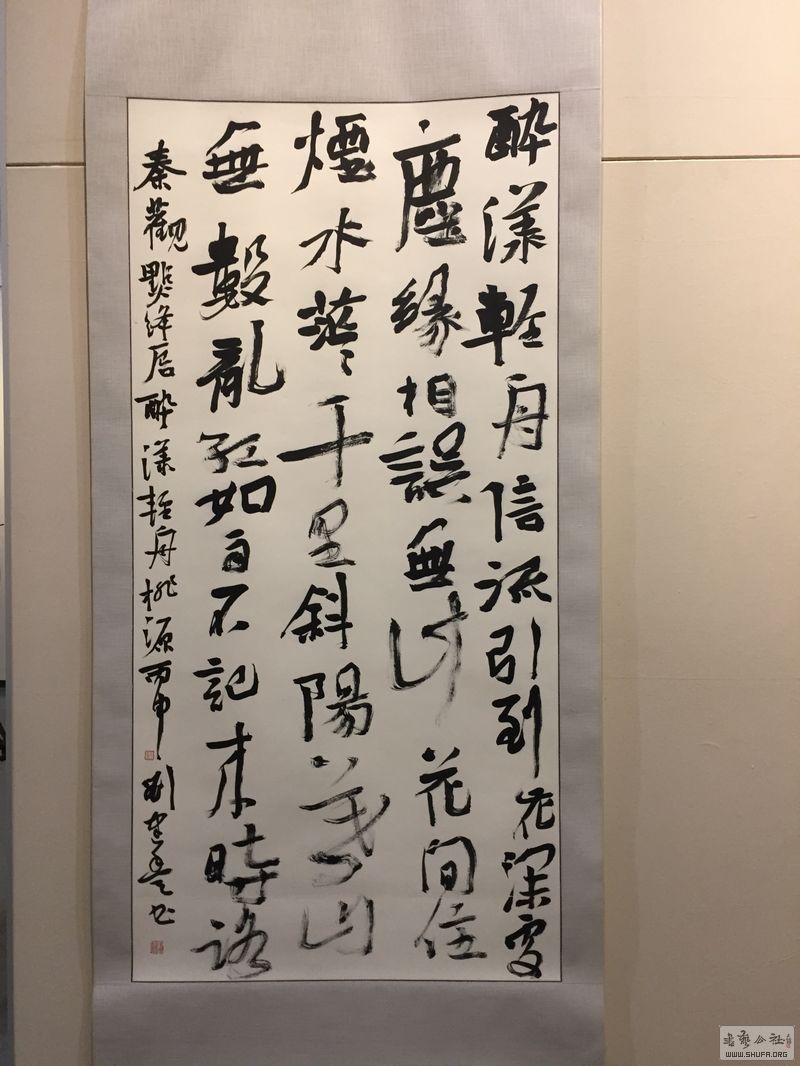 醉漾輕舟信流引到花深處
塵緣相誤無計花間住
煙水茫〻千里斜陽暮山
無數亂紅如雨不記來時路
秦觀點絳唇醉漾輕舟桃源丙申
書藝公社
WWW.SHUFA.ORG